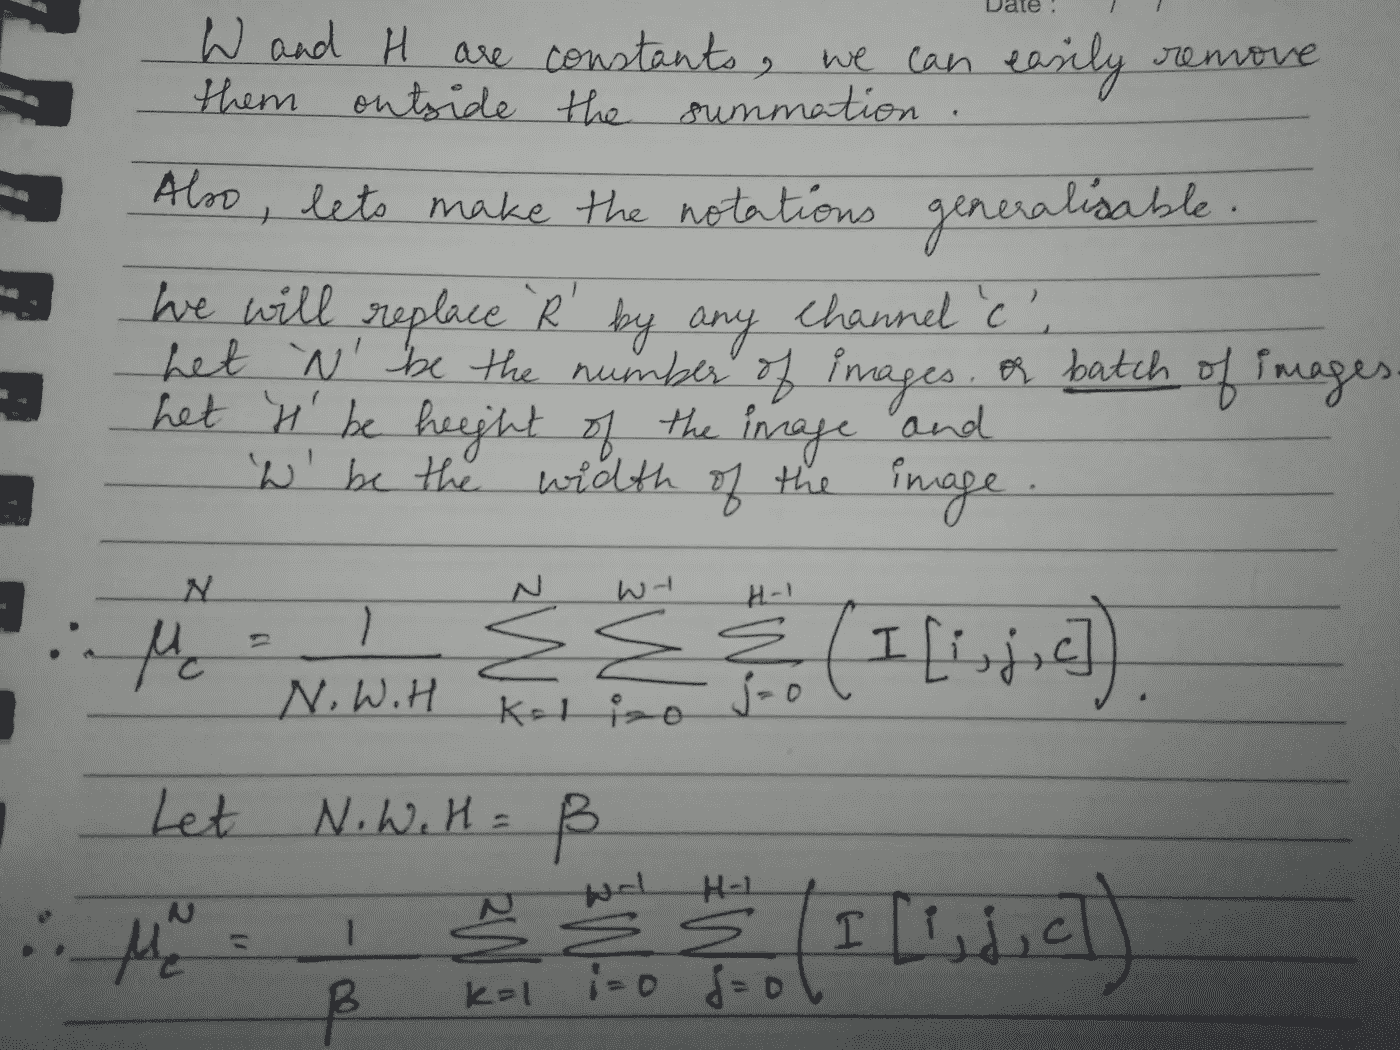 Date : / /
W and H are constants, we can easily remove
them outside the summation.
Also, lets make the notations generalisable.
We will replace 'R' by any channel 'c',
Let 'N' be the number of images. or batch of images.
Let 'H' be heeight of the image and
'W' be the width of the image.
∴ μ_c^N = 1/(N.W.H) Σ_{k=1}^{N} Σ_{i=0}^{W-1} Σ_{j=0}^{H-1} (I[i,j,c]).
Let N.W.H = β
∴ μ_c^N = 1/β Σ_{k=1}^{N} Σ_{i=0}^{W-1} Σ_{j=0}^{H-1} (I[i,j,c])